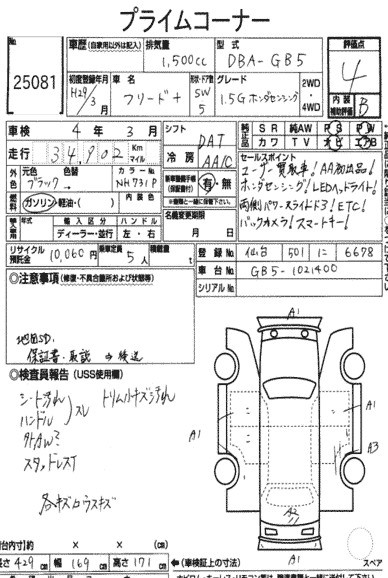 プライムコーナー
No
25081
車歴(自家用以外は記入) 排気量 1,500cc 型式 DBA-GB5
評価点 4
内装補助評価 B
初度登録年月 H29/3月 車名 フリード+ 形状・ドア数 5W 5 グレード 1.5G ホンダセンシング 2WD・4WD
車検 4年3月 シフト DAT 純正品 SR 純AW PS PW
走行 34,902 Km マイル 冷房 AAC カワ TV
外色 元色 ブラック→ 色替 カラーNo. NH731P
燃料 ガソリン・軽油・( ) 内装色
新車整備手帳(保証書付) 有・無
輸入車専用 年式 輸入区分 ハンドル
ディーラー・並行 左・右
名義変更期限 月 日
セールスポイント
ユーザー買取車!AA初出品!
ホンダセンシング!LEDヘッドライト!
両側パワースライドドア!ETC!
バックカメラ!スマートキー!
リサイクル預託金 10,060円 乗車定員 5人 積載量 t
登録No 仙台 501 に 6678
車台No GB5-1021400
シリアルNo
◎注意事項(修復・不具合箇所および状態等)
地図SD.
保証書・取説 ⇒後送
◎検査員報告(USS使用欄)
シート汚れ
ハンドル スレ
トリムハナズ汚れ
外AW?
スタッドレスT
各キズ ウスキズ
A1
A1
A1
A3
A2
A1
(荷台内寸)約 × × (cm)
長さ 429cm 幅 169cm 高さ 171cm
←(車検証上の寸法)
スペア